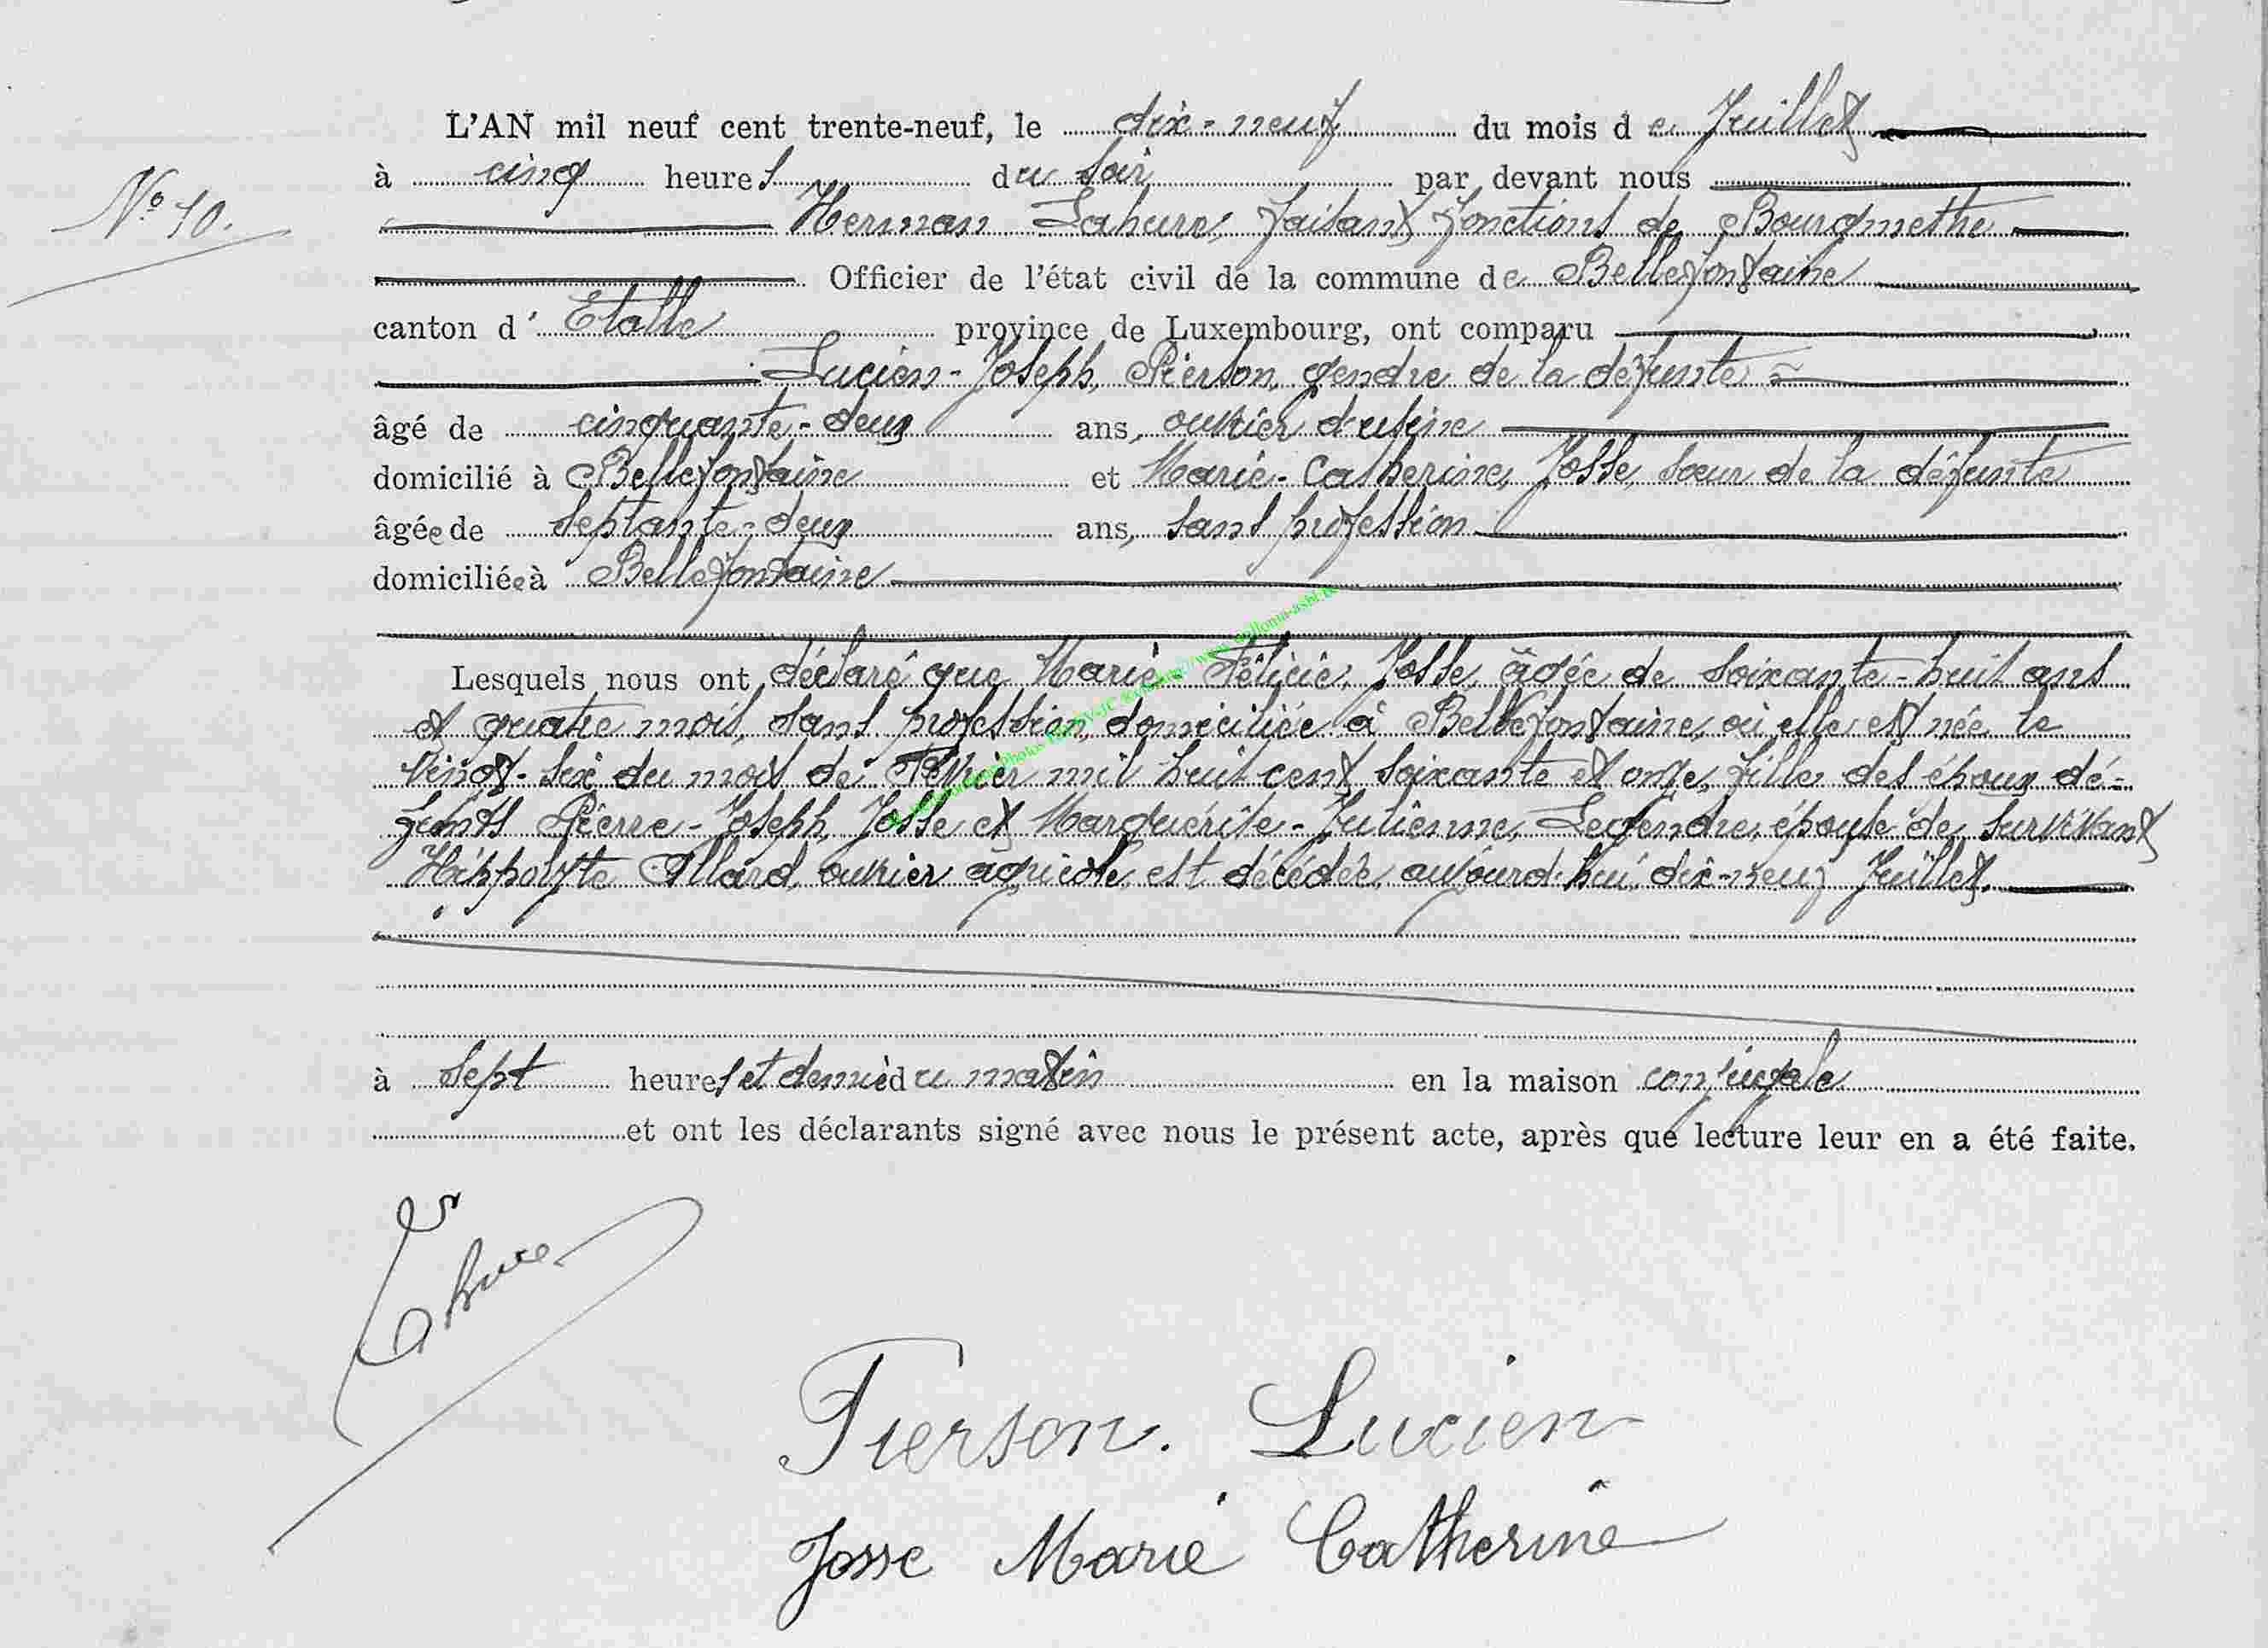 L'AN mil neuf cent trente-neuf, le dix-neuf du mois de Juillet
à cinq heures du soir par devant nous
N° 10.
Herman Lahure, faisant fonctions de Bourgmestre
Officier de l'état civil de la commune de Bellefontaine
canton d'Etalle province de Luxembourg, ont comparu
Lucien-Joseph, Pierson, gendre de la défunte
âgé de cinquante-deux ans, ouvrier d'usine
domicilié à Bellefontaine et Marie-Catherine, Josse, sœur de la défunte
âgée de septante-deux ans, sans profession
domiciliée à Bellefontaine
Lesquels nous ont déclaré que Marie-Félicie, Josse, âgée de soixante-huit ans
et quatre mois, sans profession, domiciliée à Bellefontaine, où elle est née le
vingt-six du mois de Février mil huit cent soixante et onze, fille des époux dé-
funts Pierre-Joseph, Josse et Marguérite-Julienne, Legendre, épouse de survivant
Hippolyte Allard, ouvrier agricole, est décédée, aujourd'hui, dix-neuf Juillet.
à sept heures et demie du matin en la maison conjugale
et ont les déclarants signé avec nous le présent acte, après que lecture leur en a été faite.
Lahure
Pierson. Lucien
Josse Marie Catherine